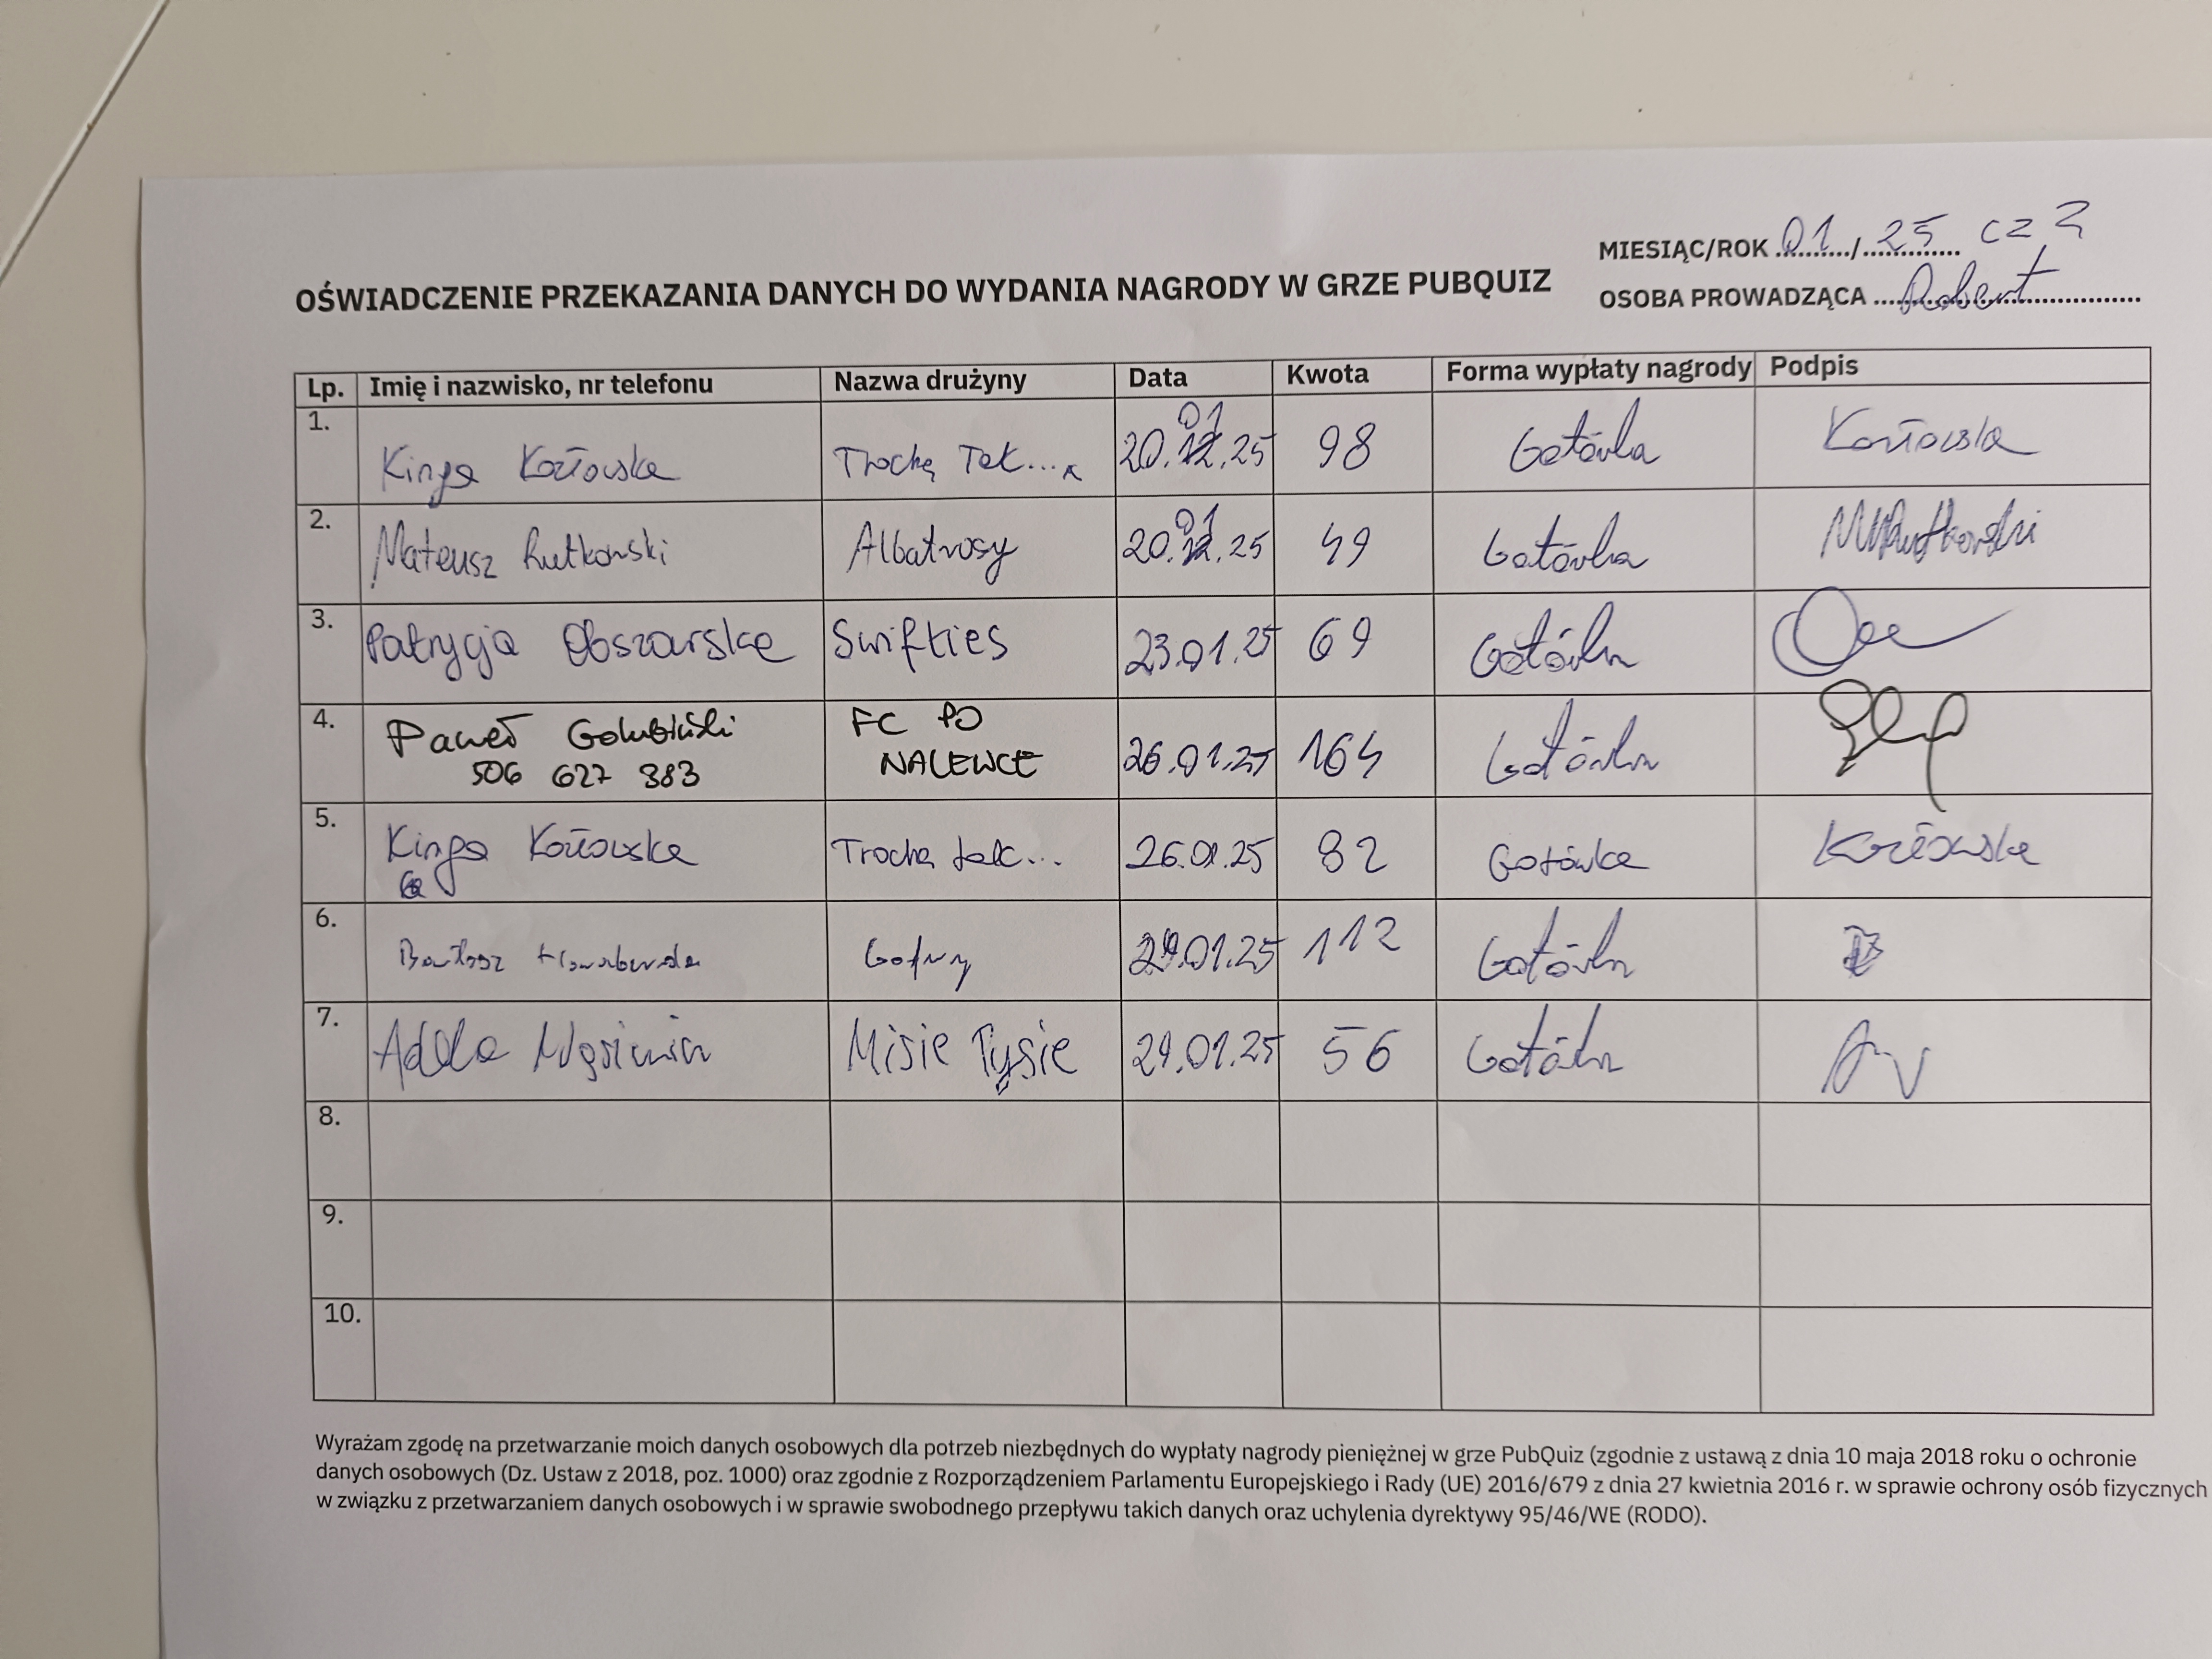 MIESIĄC/ROK 01/25 cz 2
OSOBA PROWADZĄCA Robert
OŚWIADCZENIE PRZEKAZANIA DANYCH DO WYDANIA NAGRODY W GRZE PUBQUIZ
Lp. Imię i nazwisko, nr telefonu Nazwa drużyny Data Kwota Forma wypłaty nagrody Podpis
1. Kinga Kozłowska Trochę Tak... 20.01.25 98 Gotówka Kozłowska
2. Mateusz Rutkowski Albatrosy 20.01.25 49 Gotówka MRutkowski
3. Patrycja Obszarska Swifties 23.01.25 69 Gotówka
4. Paweł Gołubiński FC PO NALEWCE 26.01.25 164 Gotówka
506 627 383
5. Kinga Kozłowska Trochę tak... 26.01.25 82 Gotówka Kozłowska
6. Bartosz Gofry 29.01.25 112 Gotówka
7. Adela Misie Tysie 29.01.25 56 Gotówka
8.
9.
10.
Wyrażam zgodę na przetwarzanie moich danych osobowych dla potrzeb niezbędnych do wypłaty nagrody pieniężnej w grze PubQuiz (zgodnie z ustawą z dnia 10 maja 2018 roku o ochronie
danych osobowych (Dz. Ustaw z 2018, poz. 1000) oraz zgodnie z Rozporządzeniem Parlamentu Europejskiego i Rady (UE) 2016/679 z dnia 27 kwietnia 2016 r. w sprawie ochrony osób fizycznych
w związku z przetwarzaniem danych osobowych i w sprawie swobodnego przepływu takich danych oraz uchylenia dyrektywy 95/46/WE (RODO).